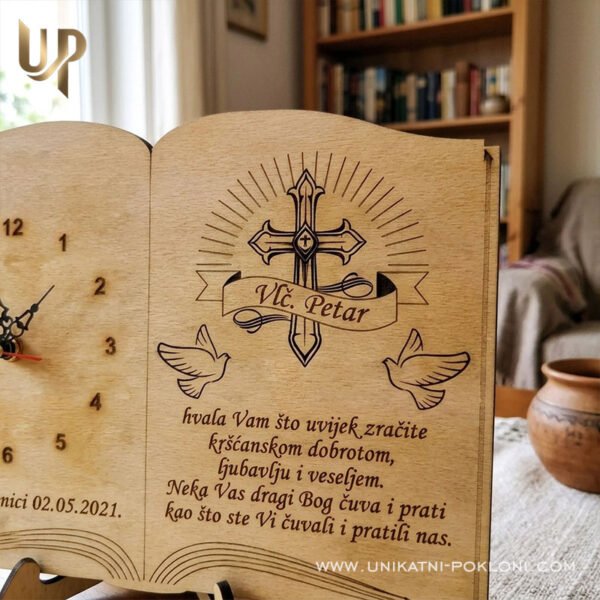 UP
12
1
2
3
4
5
6
nici 02.05.2021.
Vlč. Petar
hvala Vam što uvijek zračite
kršćanskom dobrotom,
ljubavlju i veseljem.
Neka Vas dragi Bog čuva i prati
kao što ste Vi čuvali i pratili nas.
WWW.UNIKATNI-POKLONI.COM